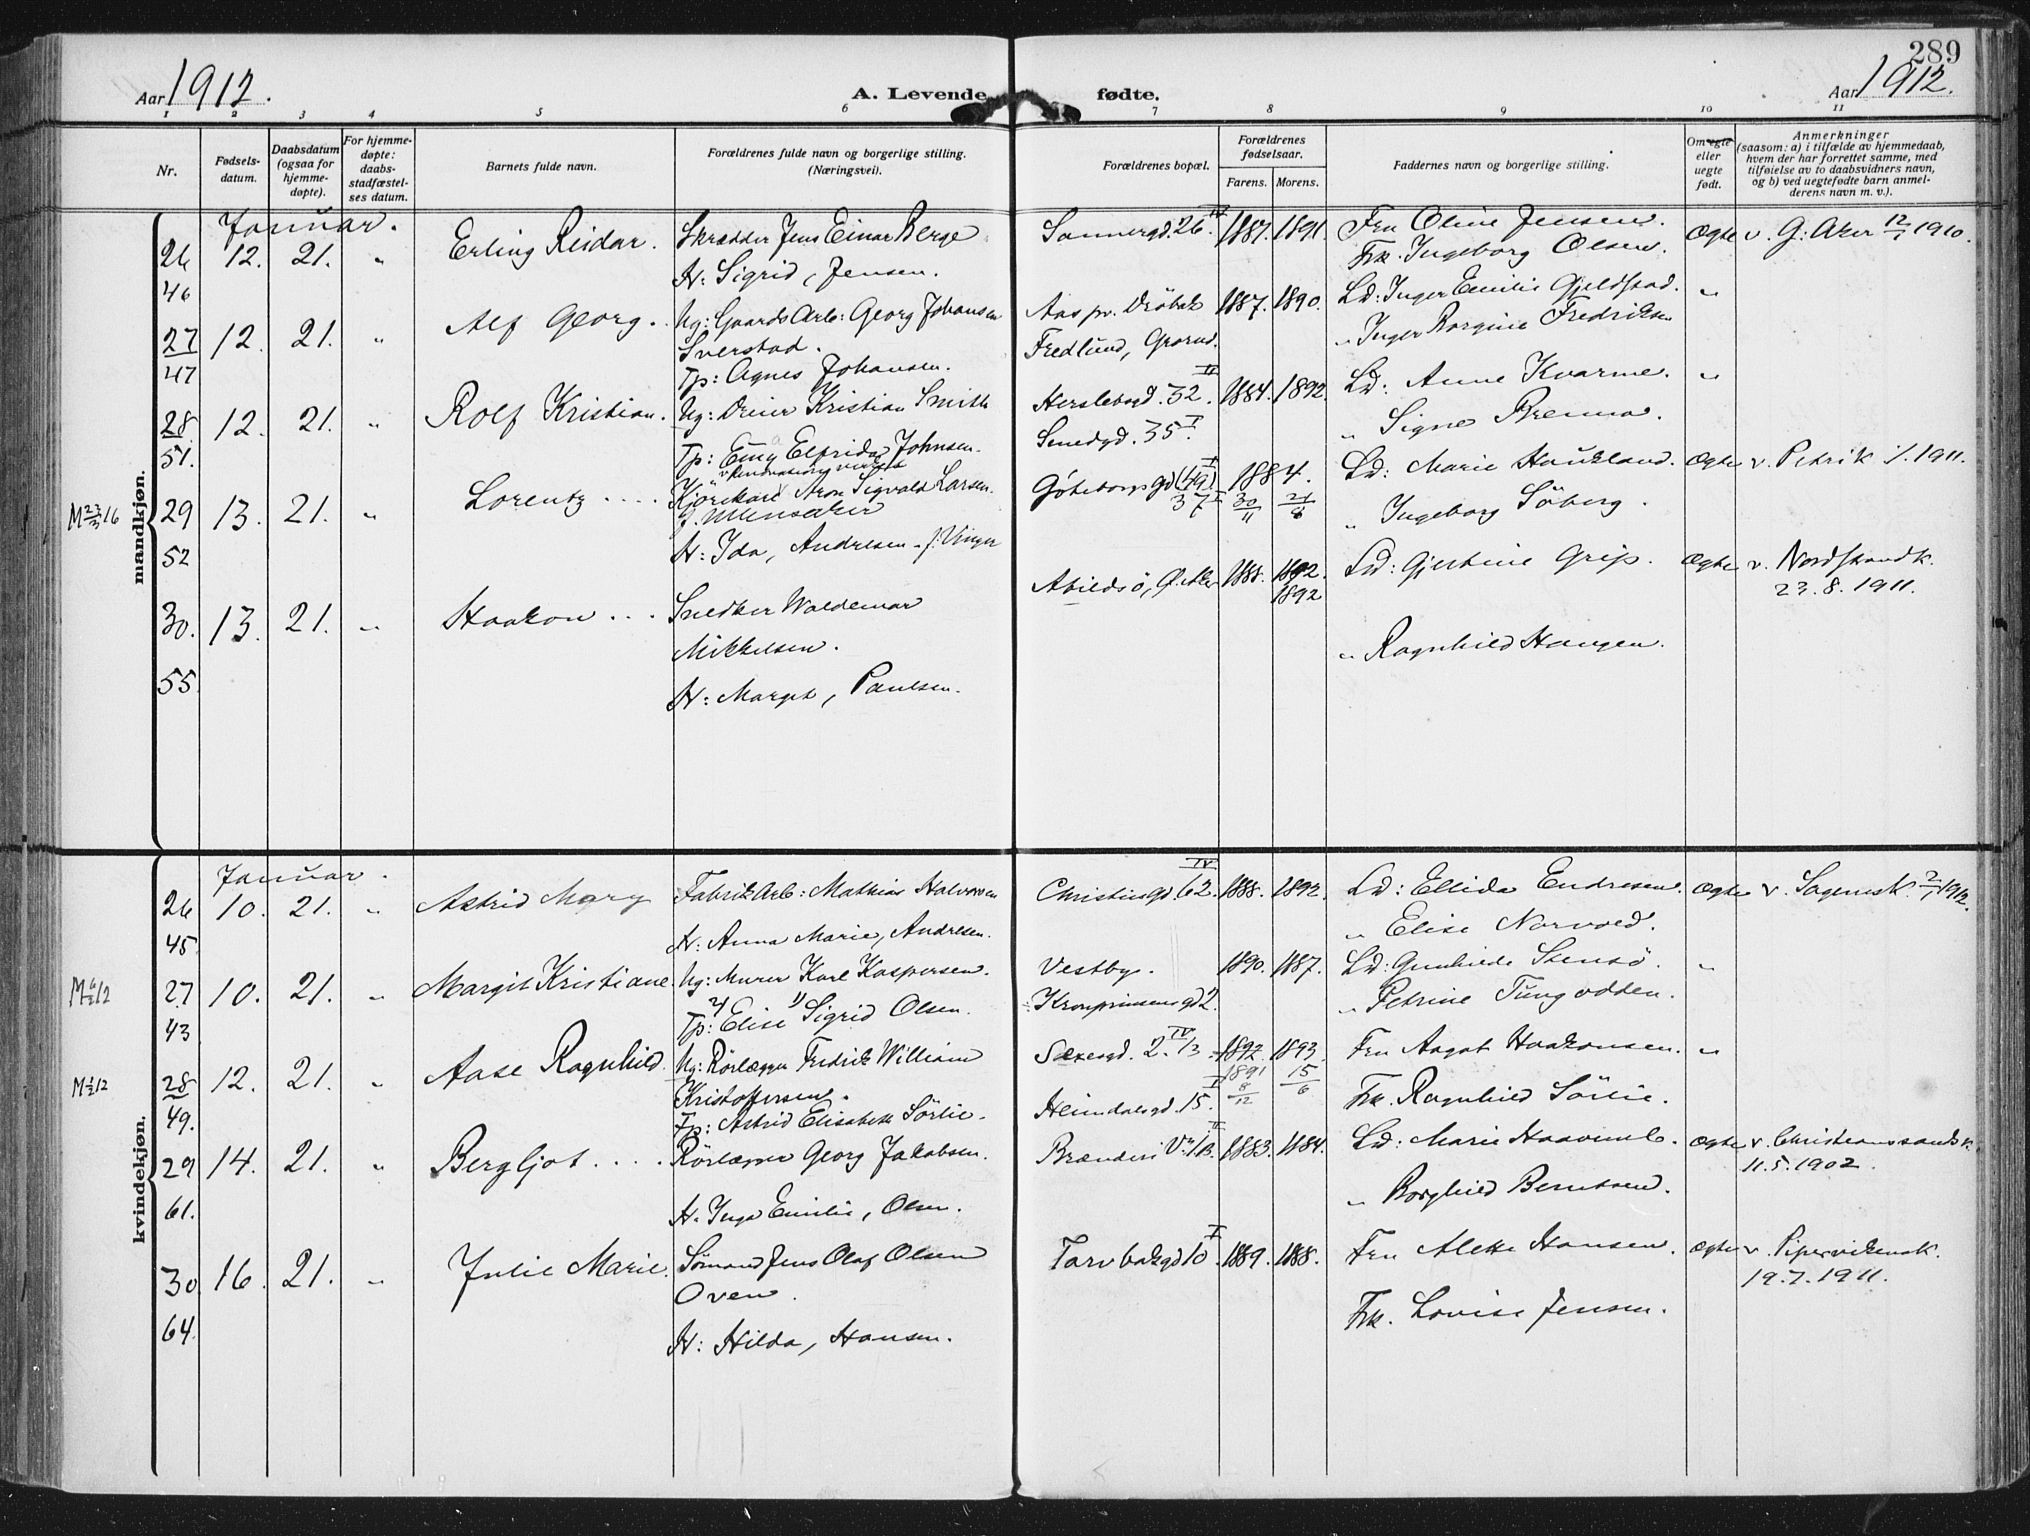 289
Aar 1912. A. Levende fødte. Aar 1912.
1 2 3 4 5 6 7 8 9 10 11
Nr.
Fødsels-
datum.
Daabsdatum
(ogsaa for
hjemme-
døpte).
For hjemme-
døpte:
daabs-
stadfæstel-
ses datum.
Barnets fulde navn.
Forældrenes fulde navn og borgerlige stilling.
(Næringsvei).
Forældrenes bopæl.
Forældrenes
fødselsaar.
Farens. Morens.
Faddernes navn og borgerlige stilling.
Om egte
eller
uegte
født.
Anmerkninger
(saasom: a) i tilfælde av hjemmedaab,
hvem der har forrettet samme, med
tilføielse av to daabsvidners navn,
og b) ved uegtefødte barn anmel-
derens navn m. v.).
mandkjøn.
Januar.
26 12. 21. " Erling Reidar. Skrædder Jens Einar Berge Sannergd. 26 IV 1887. 1891. Fru Oline Jensen. Ægte v. G: Aker 12/7 1910.
46 H: Sigrid, Jensen. Frk. Ingeborg Olsen.
27 12. 21. " Alf Georg. Ug: Gaards Arb: Georg Johansen Aas pr. Drøbak 1887. 1890. Ld: Inger Emilie Gjeldstad. "
47 Sverstad. Fredlund, Grorud. " Inger Borgine Fredriksen
Tp: Agnes Johansen.
28 12. 21. " Rolf Kristian. Ug: Dreier Kristian Smith Herslebsgd. 32. II 1884. 1892. Ld: Anne Kvarme. "
51. Tp: Emy Elfrida Johnsen. Smedgd. 35 I. " Signe Brenmo.
M 23/3 16 29 13. 21. " Lorentz.... Kjørekarl Aron Sigvald Larsen. Göteborgsgd (49) I 1884. Ld: Marie Haukland. Ægte v. Petrik 1911.
f. Ullensaker 37 I 30/11 21/8 " Ingeborg Søberg.
52 H: Ida, Andresen. f: Vinger
30. 13. 21. " Haakon... Snedker Waldemar Abildsø, Ø. Aker 1888. 1892. Ld: Gjertine Grip. Ægte v. Nordstrandk.
1892 23.8.1911.
Mikkelsen. " Ragnhild Haugen.
55. H: Margit, Paulsen.
kvindekjøn.
Januar.
26 10. 21. " Astrid Mary Fabrik Arb: Mathias Halvorsen Christiesgd. 62. IV 1888. 1892. Ld: Ellida Endresen. Ægte v. Sagenesk. 2/1 1912.
45. H: Anna Marie, Andresen. " Elise Norvold.
M 6/2 12 27 10. 21. " Margit Kristiane. Ug: Murer Karl Kaspersen. Vestby. 1890. 1887. Ld: Gunhilde Stensø. "
43 Tp: 2) Elise 1) Sigrid Olsen. Kronprinsensgd 2. " Petrine Tungodden.
M 1/2 12 28 12. 21. " Aase Ragnhild. Ug: Rørlægger Fredrik William Saxegd. 2. IV/3 1892. 1893. Fru Aagot Haakonsen. "
49. Kristoffersen. 1891 8/12 15/6
Fp: Astrid Elisabeth Sørlie. Heimdalsgd. 15. I Frk. Ragnhild Sørlie.
29 14. 21. " Bergljot.... Rørlægger Georg Jakobsen. Brænderi V: 1 B. II 1883. 1884. Ld: Marie Haavimb. Ægte v. Christianssands k.
11.5.1902.
61. H: Inga Emilie, Olsen. " Borghild Berntsen.
30 16. 21. " Julie Marie. Sømand Jens Olaf Olsen Torvbakgd 10 I. 1889. 1888. Fru Alette Hansen. Ægte v. Pipervikensk.
Oven. 19.7.1911.
Frk. Lovise Jensen.
64. H: Hilda, Hansen.